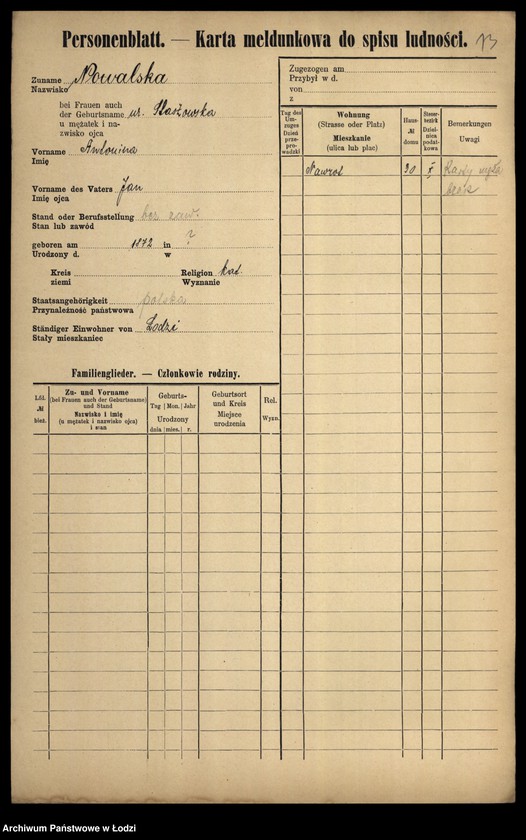 Personenblatt. — Karta meldunkowa do spisu ludności. 13
Zuname Nowalska
Nazwisko
bei Frauen auch
der Geburtsname ur.
u mężatek i na-
zwisko ojca
Vorname Antonina
Imię
Vorname des Vaters Jan
Imię ojca
Stand oder Berufsstellung bez zaw.
Stan lub zawód
geboren am 1872 in ?
Urodzony d. w
Kreis Religion kat.
ziemi Wyznanie
Staatsangehörigkeit polska
Przynależność państwowa
Ständiger Einwohner von Łodzi
Stały mieszkaniec
Familienglieder. — Członkowie rodziny.
Lfd. № bież.
Zu- und Vorname
(bei Frauen auch der Geburtsname)
und Stand
Nazwisko i imię
(u mężatek i nazwisko ojca)
i stan
Geburts-
Tag | Mon. | Jahr
Urodzony
dnia | mies. | r.
Geburtsort
und Kreis
Miejsce
urodzenia
Rel.
Wyzn.
Zugezogen am
Przybył w d.
von
z
Tag des Um-zuges
Dzień prze-pro-wadzki
Wohnung
(Strasse oder Platz)
Mieszkanie
(ulica lub plac)
Haus-
№
domu
Steuer-bezirk
Dziel-nica podat-kowa
Bemerkungen
Uwagi
Nawrot 30
Archiwum Państwowe w Łodzi